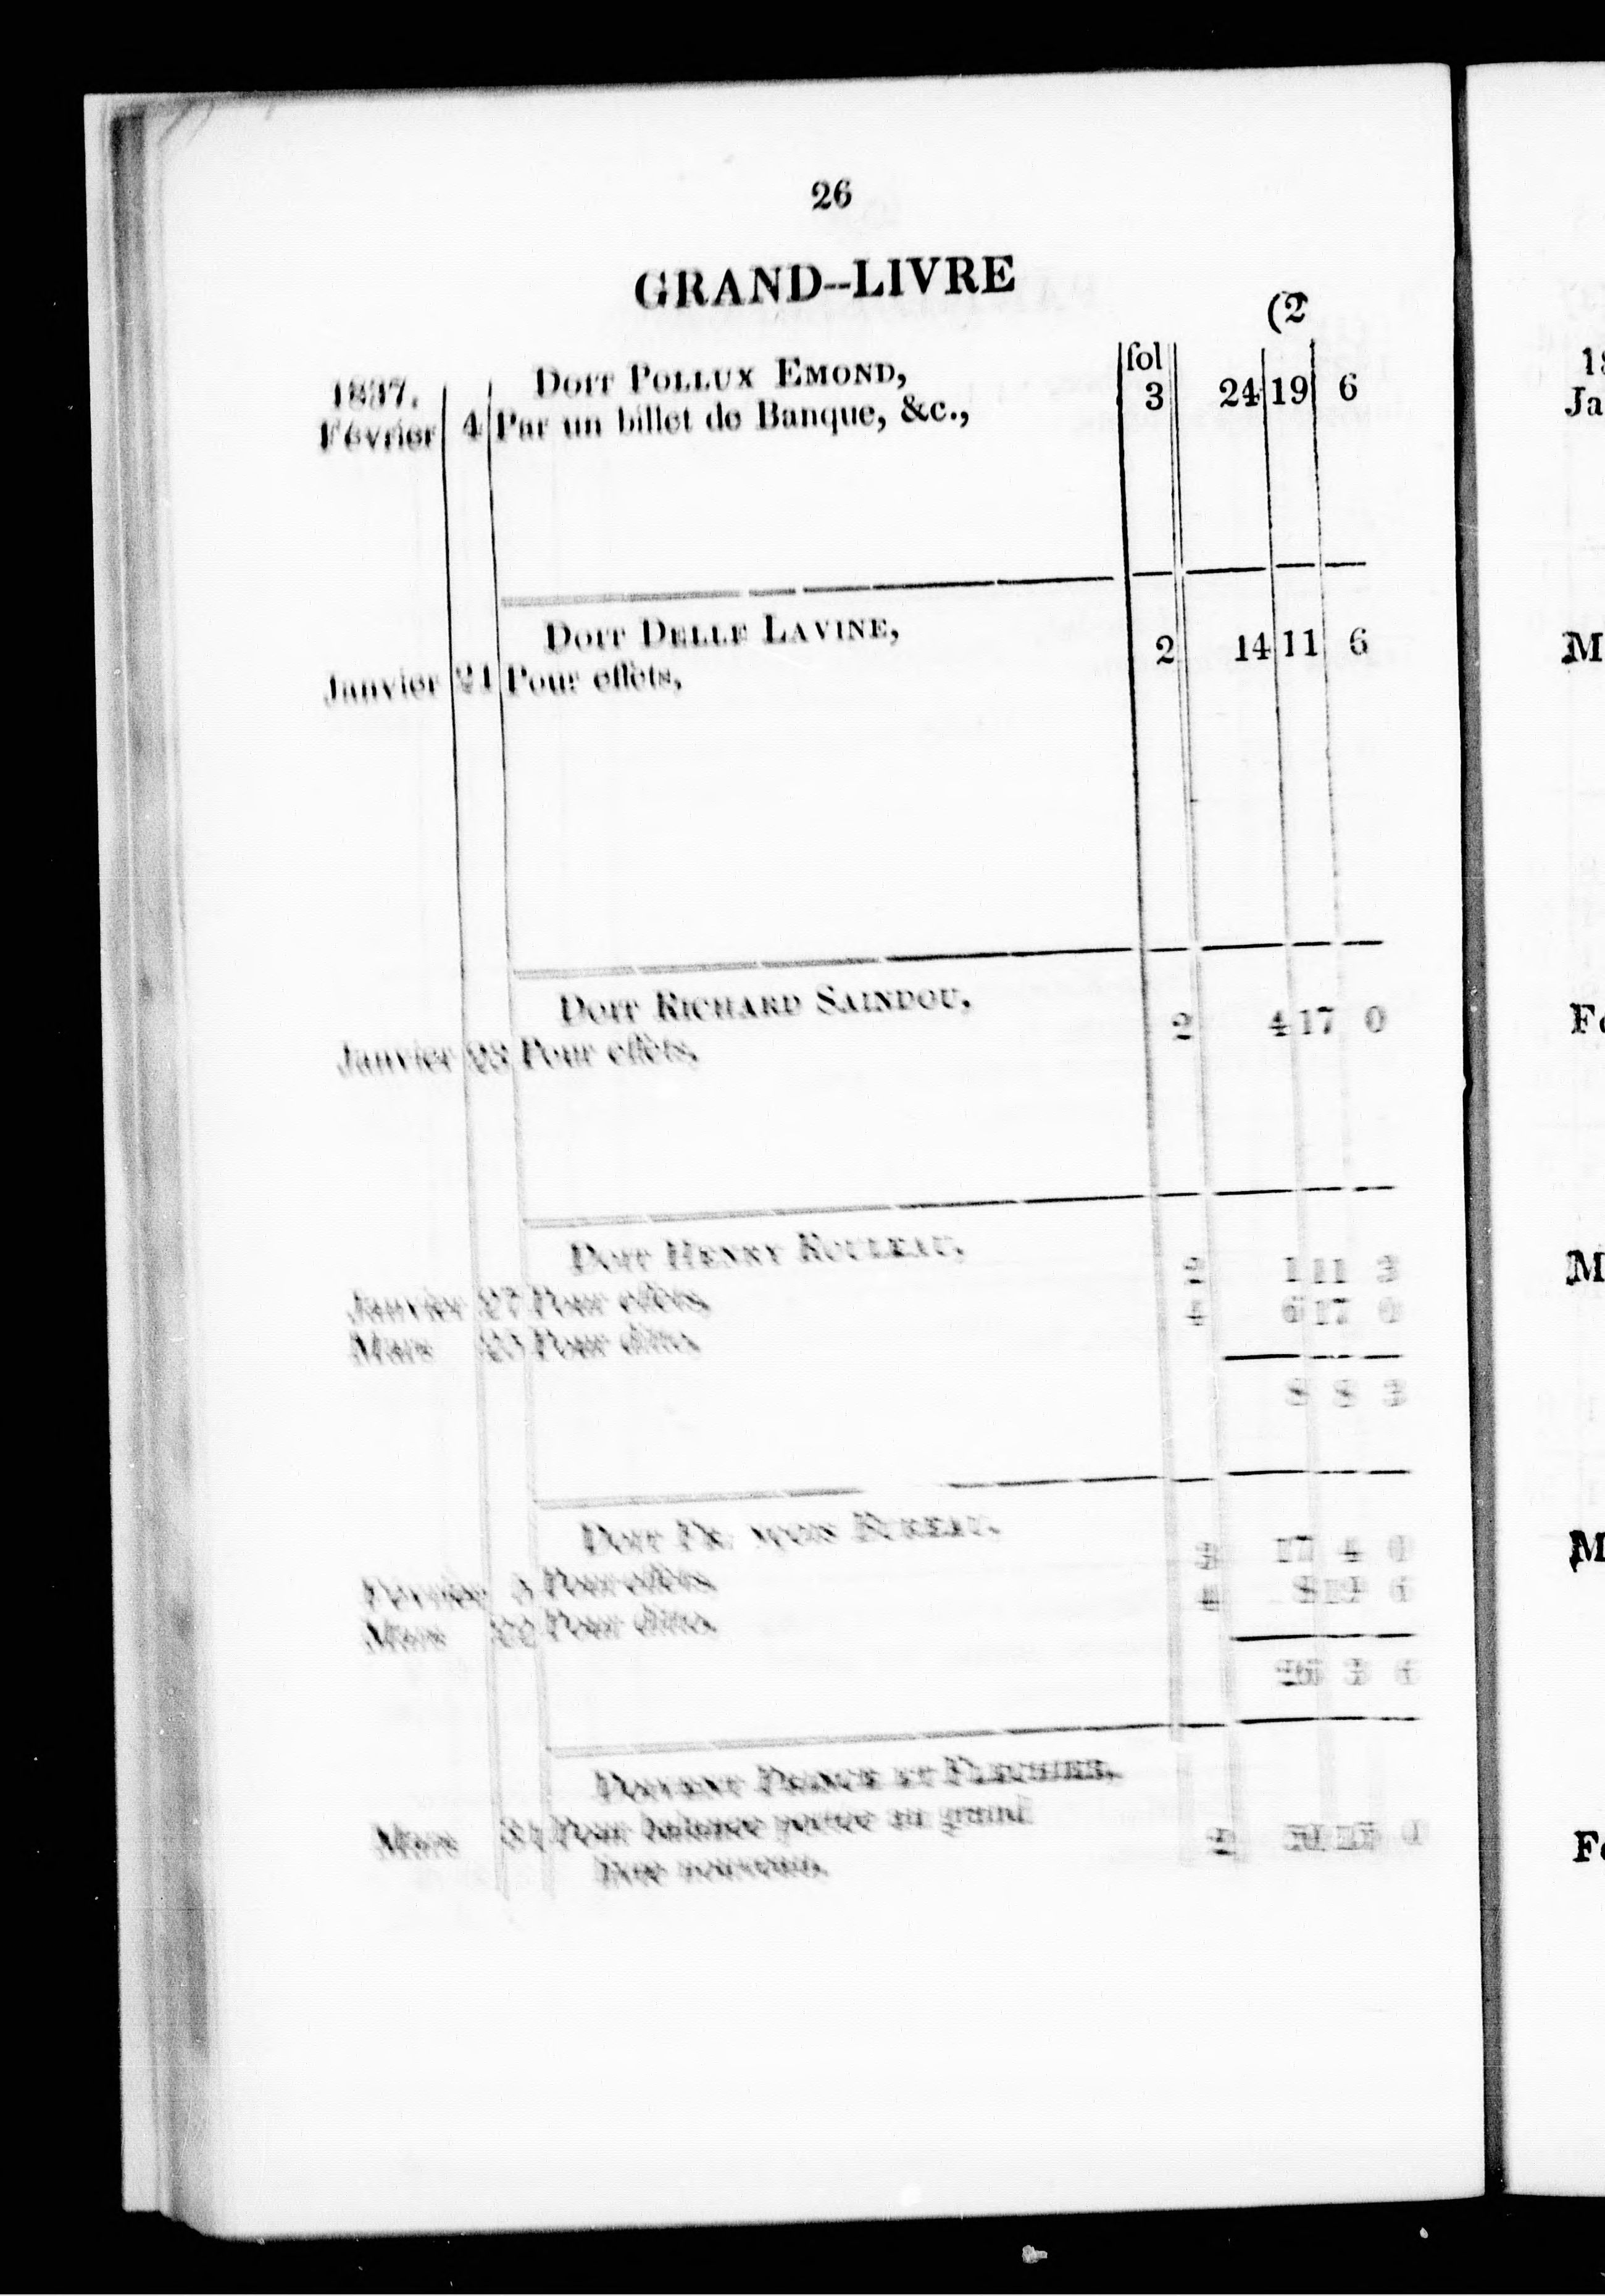 26
GRAND--LIVRE
(2
fol
1837. DOIT POLLUX EMOND,
Février 4 Par un billet de Banque, &c., 3 24 19 6
DOIT DELLE LAVINE,
Janvier 21 Pour effets, 2 14 11 6
DOIT RICHARD SAINDOU,
Janvier 28 Pour effets, 2 4 17 0
DOIT HENRY ROULEAU,
Janvier 27 Pour effets, 2 1 11 3
Mars Pour dittos, 4 6 17 0
8 8 3
DOIT
Février Pour effets, 17 4 0
Mars 22 Pour dittos, 4 6
6
DOIVENT PRINCE ET FLECHIER,
Mars 31 Pour balance portée au grand
livre nouveau,
18
Ja
M
Fe
M
M
Fe